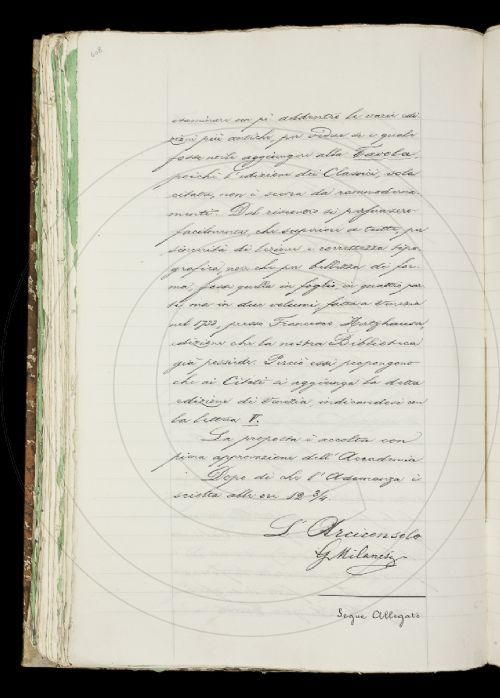 608
esaminare un po' addentro le varie edi
zioni più antiche, per vedere se e quale
fosse utile aggiungere alla Tavola,
poichè l'edizione dei Classici, sola
citata, non è scevra da rammoderna
menti. Dal riscontro si persuasero
facilmente, che superiore a tutte, per
sincerità di lezione e correttezza tipo
grafica, non che per bellezza di for
ma, fosse quella in foglio, in quattro par
ti, ma in due volumi, fatta a Venezia
nel 1722, presso Francesco Hertzhauser,
edizione che la nostra Biblioteca
già possiede. Perciò essi propongono
che ai Citati si aggiunga la detta
edizione di Venezia, indicandosi con
la lettera V.
La proposta è accolta con
piena approvazione dell'Accademia
Dopo di che l'Adunanza è
sciolta alle ore 12 3/4
L'Arciconsolo
G Milanesi
Segue Allegato